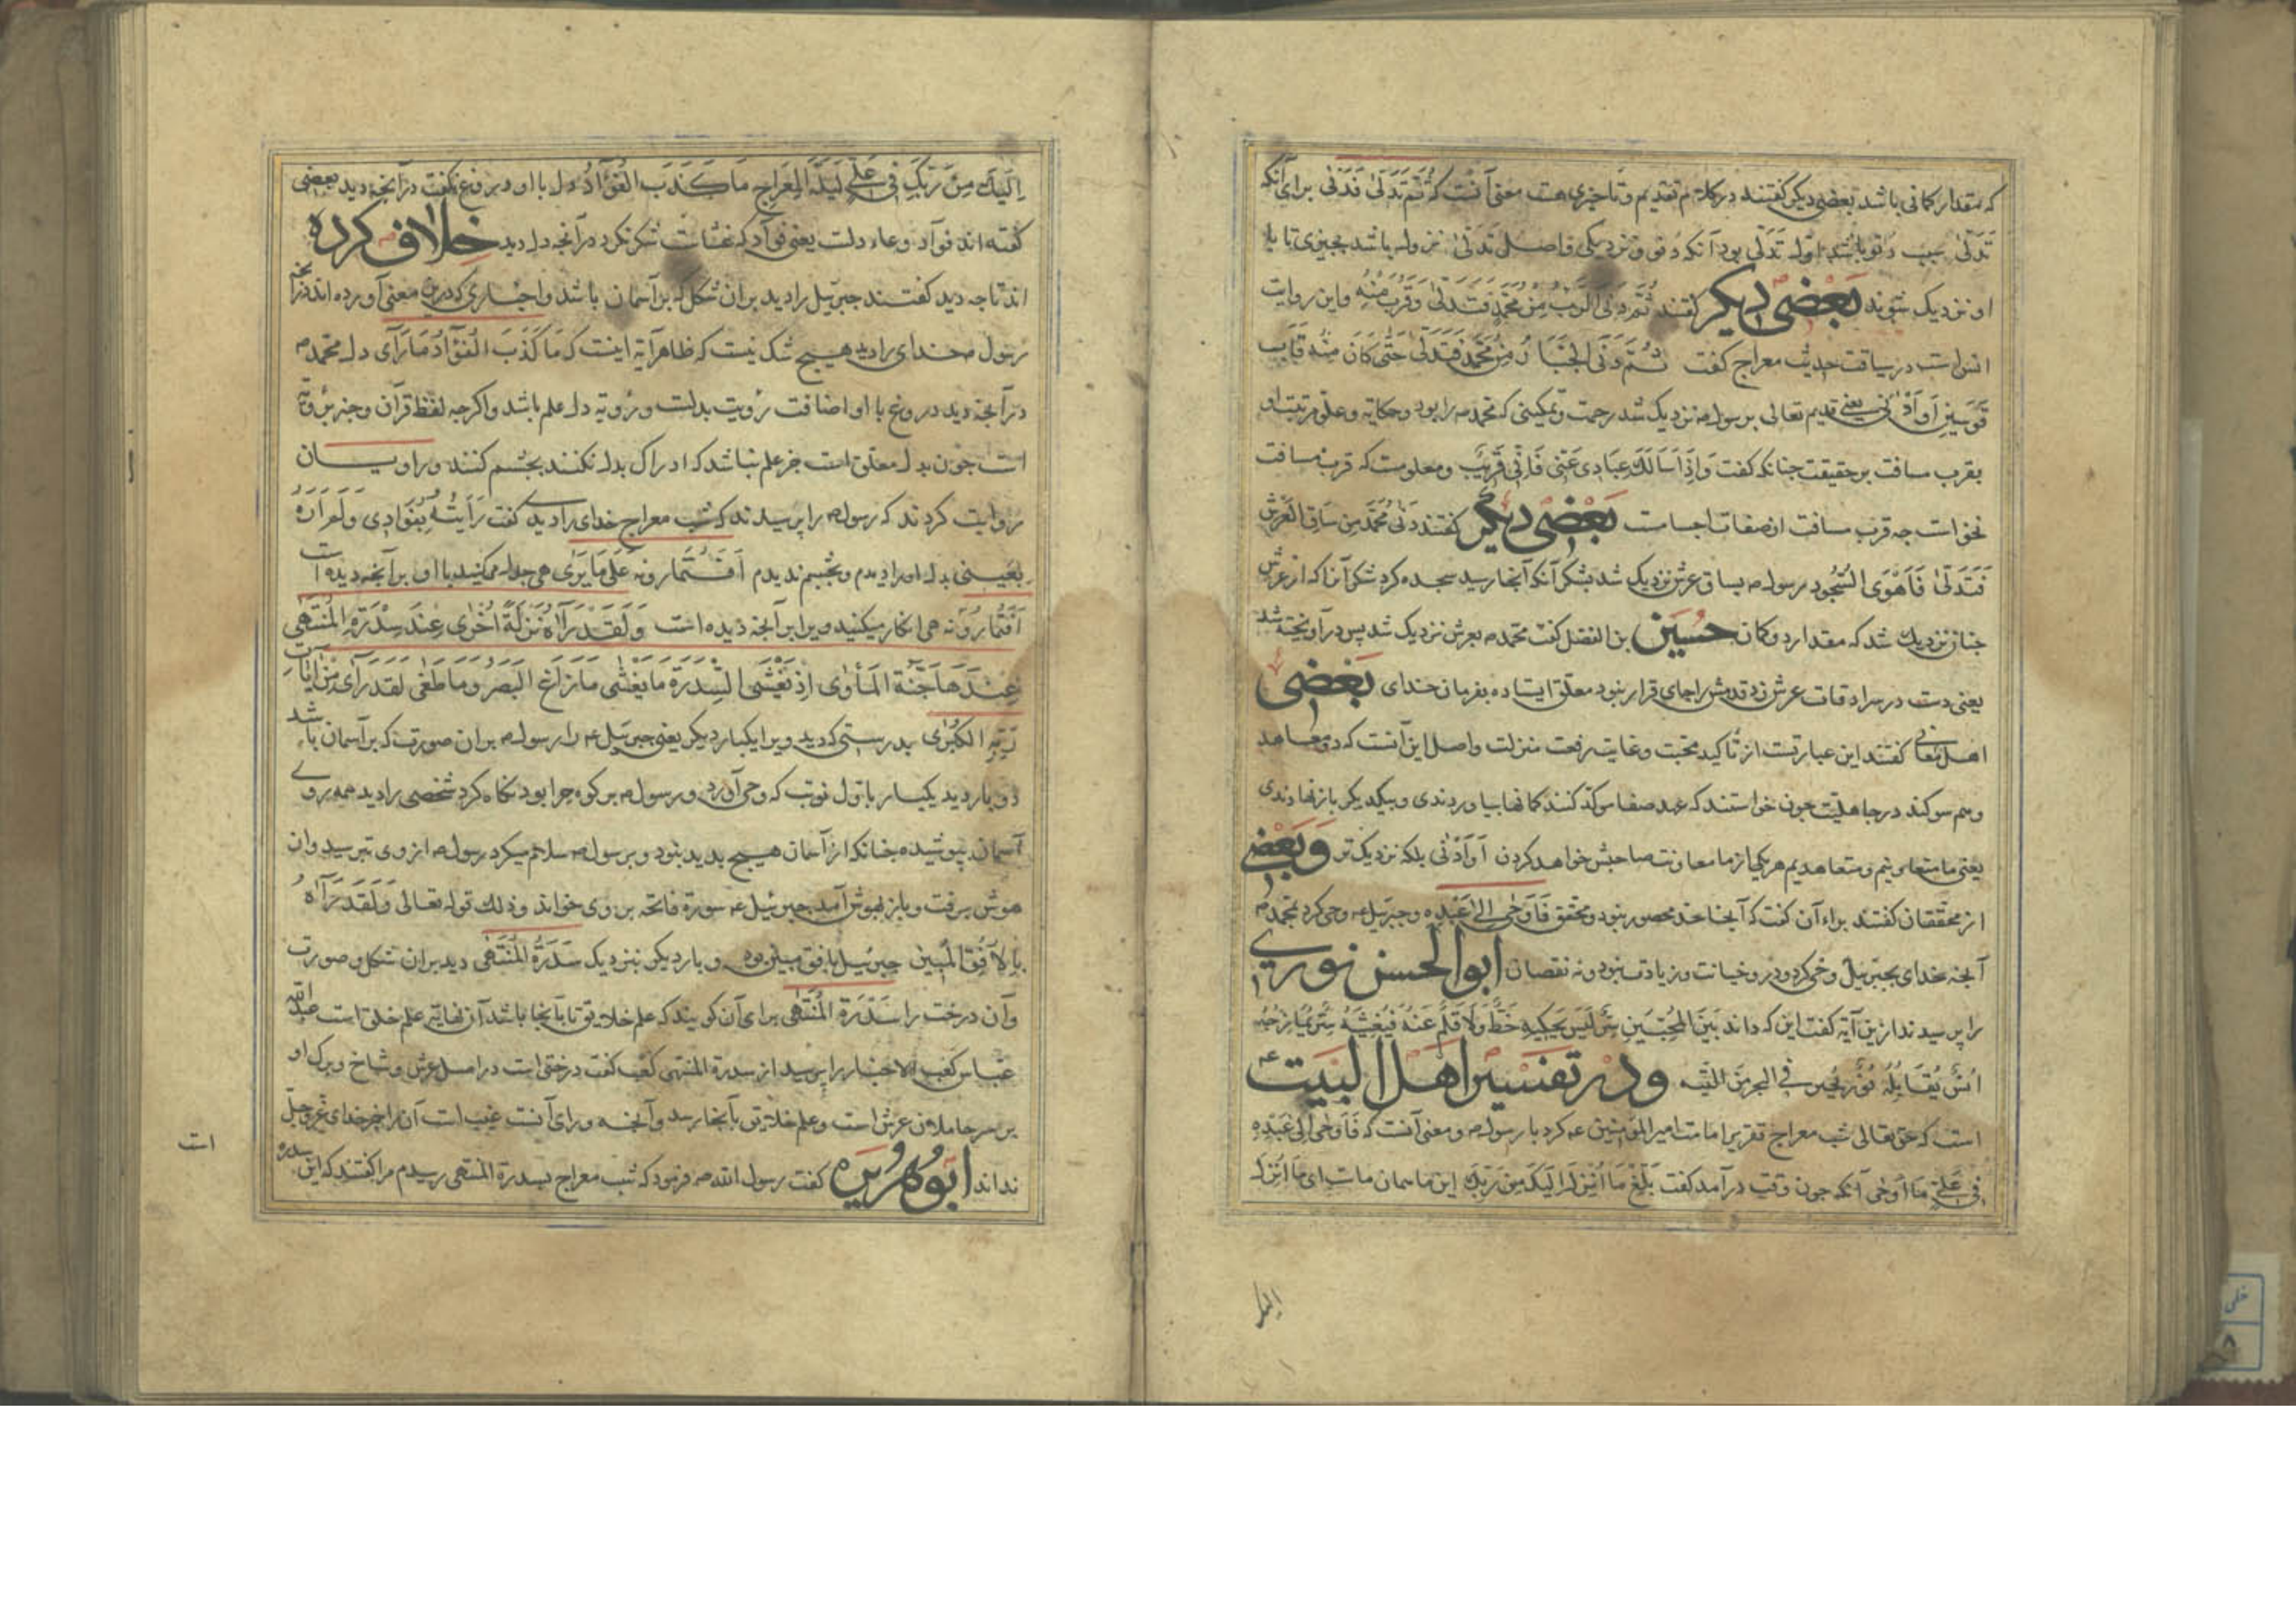 که مقدار کمانی باشد بعضی دیگر گفتند در کلام تقدیم و تاخیری هست معنی آنست که ثُمَّ تَدَلّیٰ فَدَنیٰ برای آنکه
تَدَلّیٰ سبب دنو باشد اول تَدَلّی بود آنکه دنو و نزدیکی و اصل تَدَلّیٰ نزول باشد بچیزی تا با
او نزدیک شوند بَعْضی دیکر گفتند ثُمَّ دَنَی الرَّبُّ مِنْ مُحَمَّدٍ فَتَدَلّیٰ وَقَرُبَ مِنْهُ و این روایت
انس است در سیاقت حدیث معراج گفت ثُمَّ دَنَی الْجَبَّارُ مِنْ مُحَمَّدٍ فَتَدَلّیٰ حَتّیٰ کَانَ مِنْهُ قَابَ
قَوْسَیْنِ اَوْ اَدْنیٰ یعنی قدیم تعالی برسول ص نزدیک شد رحمت و تمکینی که محمد ص را بود و حکایة و علو مرتبت او
بقرب مسافت بر حقیقت چنانکه گفت وَاِذَا سَاَلَکَ عِبَادِی عَنّی فَاِنّی قَرِیْبٌ و معلومست که قرب مسافت
نخواست چه قرب مسافت از صفات اجسامت بَعْضی دیگر گفتند دَنیٰ مُحَمَّد مِن سَاقِ العَرْشِ
فَتَدَلّیٰ فَاَهْوَی السُّجُود رسول ص بساق عرش نزدیک شد بشکر آنکه آنجا رسید سجده کرد شکر آنرا که از عرش
چنان نزدیک شد که مقدار دو کمان حُسَین بن الفضل گفت محمد ص بعرش نزدیک شد پس درآویخته شد
یعنی دست در سرادقات عرش زد قدمش را جای قرار نبود معلق ایستاده بفرمان خدای بَعْضی
اهل معانی گفتند این عبارتست از تأکید محبت و غایت رفعت منزلت و اصل این آنست که دو معاهد
وهم سوکند در جاهلیت چون خواستندی که عهد صفا مؤکد کنند کمانها بیاوردندی و بیکدیگر باز نهادندی
یعنی ما متعاس یتیم و متعاهدیم هر یکی از ما معاونت صاحبش خواهد کردن اَوْ اَدْنیٰ بلکه نزدیک تر وبَعْضی
از محققان گفتند براء آن گفت که آنجا حد محصور نبود و محقق فَاَوْحیٰ اِلیٰ عَبْدِه و جبرئیل ع وحی کرد بمحمد ص
آنچه خدای بجبرئیل وحی کرد و درو خیانت و زیادت نبود و نه نقصان ابوالحسن نوری
را پرسیدند ازین آیة گفت این که داند بَیْنَ المُحِبّینَ سِرٌّ لَیْسَ یَحْکِیهِ خَطٌّ وَلَا قَلَمٌ عَنْهُ
اُنْسٌ یُقَابِلُهُ نُوْرٌ فی البحر مِنَ التِّیْهِ ودر تفسیر اهل البیت ع
است که حق تعالی شب معراج تقریر امامت امیر المؤمنین ع کرد با رسول ص و معنی آنست که فَاَوْحیٰ اِلیٰ عَبْدِهِ
فی عَلِیٍّ مَا اَوْحیٰ آنکه چون وقت درآمد گفت بَلِّغْ مَا اُنْزِلَ اِلَیْکَ مِنْ رَبِّکَ این ما همان ماست ای مَا اُنْزِلَ
اِلَیْکَ مِنْ رَبِّکَ فی عَلِیٍّ لَیْلَةَ المِعْرَاجِ مَا کَذَبَ الْفُؤَادُ دل با او دروغ نگفت در آنچه دید بعضی
گفته اند فوآد وعاء دلست یعنی فوآد که غشات شک نکرد در آنچه دل دید خِلاف کرده
اند تا چه دید گفتند جبرئیل را دید بران شکل که بر آسمان باشد و اخباری که درین معنی آورده اند
رسول ص خدای را دید هیچ شک نیست که ظاهر آیة اینست که مَا کَذَبَ الْفُؤَادُ مَا رَآی دل محمد ص
در آنچه دید دروغ با او اضافت رؤیت بدلست و رؤیة دل علم باشد و اگرچه لفظ قرآن و خبر رؤیة
است چون بدل معلق است جز علم نباشد که ادراک بدل نکنند بچشم کنند و راویان
روایت کردند که رسول ص را پرسیدند که شب معراج خدای را دیدی گفت رَاَیْتُهُ بِفُؤَادِی وَلَمْ اَرَهُ
بِعَیْنی بدل او را دیدم و بچشم ندیدم اَفَتُمَارُونَهُ عَلیٰ مَا یَریٰ هی جدل میکنید با او بر آنچه دیده است
اَفَتُمَارُوْنَه هی انکار میکنید ویرا بر آنچه دیده است وَلَقَدْ رَآهُ نَزْلَةً اُخْریٰ عِنْدَ سِدْرَةِ الْمُنْتَهیٰ
عِنْدَهَا جَنَّةُ الْمَأْویٰ اِذْ یَغْشَی السِّدْرَةَ مَا یَغْشیٰ مَا زَاغَ الْبَصَرُ وَمَا طَغیٰ لَقَدْ رَآی مِنْ اٰیَاتِ
رَبِّهِ الْکُبْریٰ بدرستی که دید ویرا یکبار دیگر یعنی جبرئیل ع را رسول ص بران صورت که بر آسمان باشد
دو بار دید یکبار باول نوبت که وحی آورد و رسول ص بر کوه حرا بود نگاه کرد شخصی را دید همه روی
آسمان بپوشیده چنانکه از آسمان هیچ بدید نبود و بر رسول ص سلام میکرد رسول ص از وی بترسید و ازان
هوش برفت و باز بهوش آمد جبرئیل ع سورة فاتحه بر وی خواند وذلک قوله تعالی وَلَقَدْ رَآهُ
بِالْاُفُقِ الْمُبِینِ جبرئیل بافق مبین بود و بار دیگر بنزدیک سِدْرَةُ الْمُنْتَهیٰ دید بران شکل و صورت
و آن درخت را سِدْرَة الْمُنْتَهیٰ برای آن گویند که علم خلایق تا بآنجا باشد آن نهایة علم خلق است عبدالله
عباس کعب الاخبار را پرسید از سدرة المنتهی کعب گفت درختی است در اصل عرش و شاخ و برک او
بر سر حاملان عرش است و علم خلایق بآنجا رسد و آنچه ورای آنست غیب است آن را جز خدای عز و جل
نداند ابوُهُرَیْرَه گفت رسول الله ص فرمود که شب معراج بسدرة المنتهی رسیدم مرا گفتند که این سدره
است